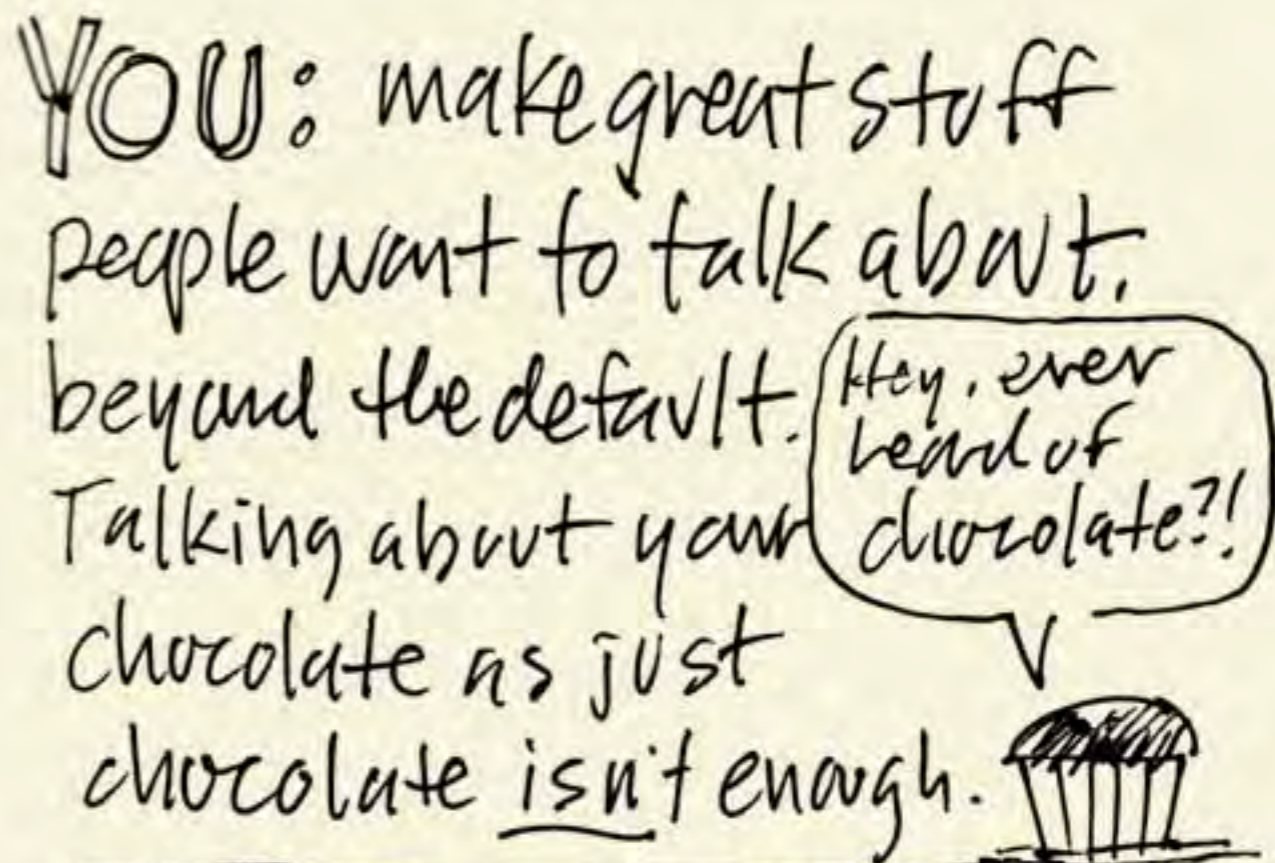 YOU: make great stuff
people want to talk about.
beyond the default.
Talking about your
chocolate as just
chocolate isn't enough.
Hey, ever
heard of
chocolate?!